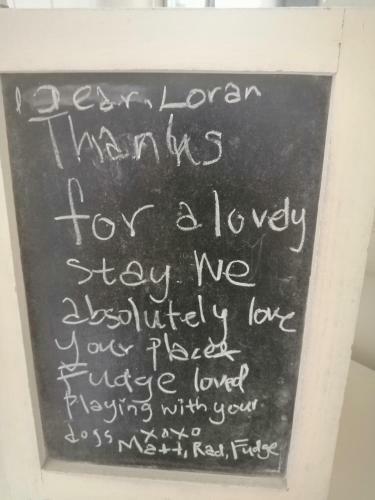 Dear, Loran
Thanks
for a lovely
stay. We
absolutely love
your place
Fudge loved
Playing with your
dogs xoxo
Matt, Rad, Fudge